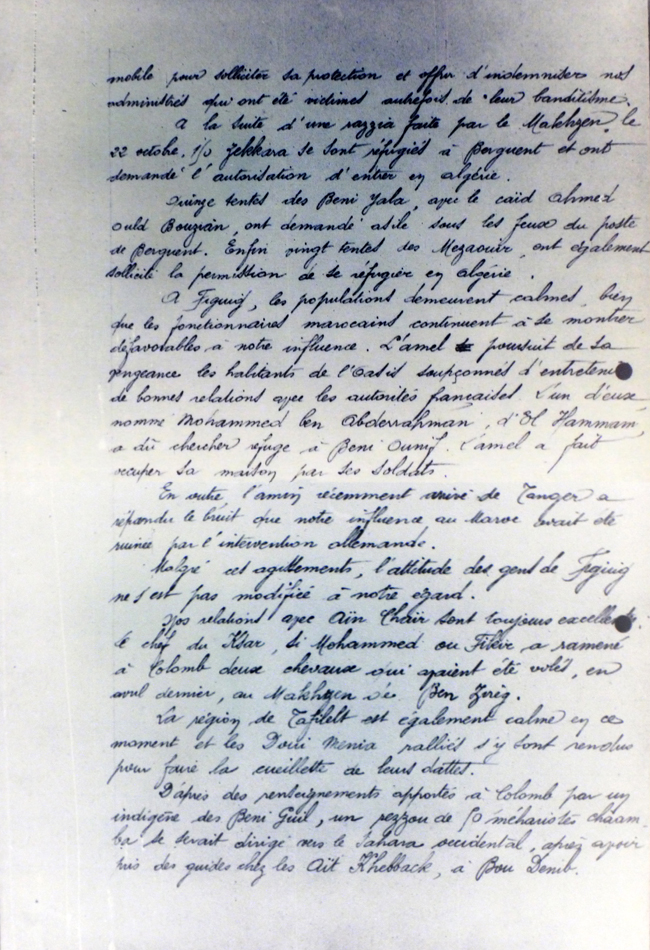 mobile pour solliciter sa protection et offrir d'indemniser nos
administrés qui ont été victimes autrefois de leur banditisme.
A la suite d'une razzia faite par le Makhzen, le
22 octobre, Zekkara se sont réfugiés à Berguent et ont
demandé l'autorisation d'entrer en Algérie.
Quinze tentes des Beni Yala, avec le caïd Ahmed
ould Bouzian, ont demandé asile sous les feux du poste
de Berguent. Enfin vingt tentes des Mezaouir, ont également
sollicité la permission de se réfugier en Algérie.
A Figuig, les populations demeurent calmes, bien
que les fonctionnaires marocains continuent à se montrer
défavorables à notre influence. L'amel poursuit de sa
vengeance les habitants de l'Oasis soupçonnés d'entretenir
de bonnes relations avec les autorités françaises. L'un d'eux
nommé Mohammed ben Abderrahman, d'El Hammam,
a dû chercher refuge à Beni Ounif. L'amel a fait
occuper sa maison par ses soldats.
En outre l'amin récemment arrivé de Tanger a
répandu le bruit que notre influence au Maroc avait été
ruinée par l'intervention allemande.
Malgré ces agissements, l'attitude des gens de Figuig
ne s'est pas modifiée à notre égard.
Nos relations avec Aïn Chaïr sont toujours excellentes.
Le chef du Ksar, Si Mohammed ou Fikir a ramené
à Colomb deux chevaux qui avaient été volés, en
avril dernier, au Makhzen de Ben Zireg.
La région de Tafilelt est également calme en ce
moment et les Doui Menia ralliés s'y sont rendus
pour faire la cueillette de leurs dattes.
D'après des renseignements apportés à Colomb par un
indigène des Beni Guil, un rezzou de 50 méharistes chaam-
ba se serait dirigé vers le Sahara occidental, après avoir
pris des guides chez les Aït Khebbach, à Bou Denib.